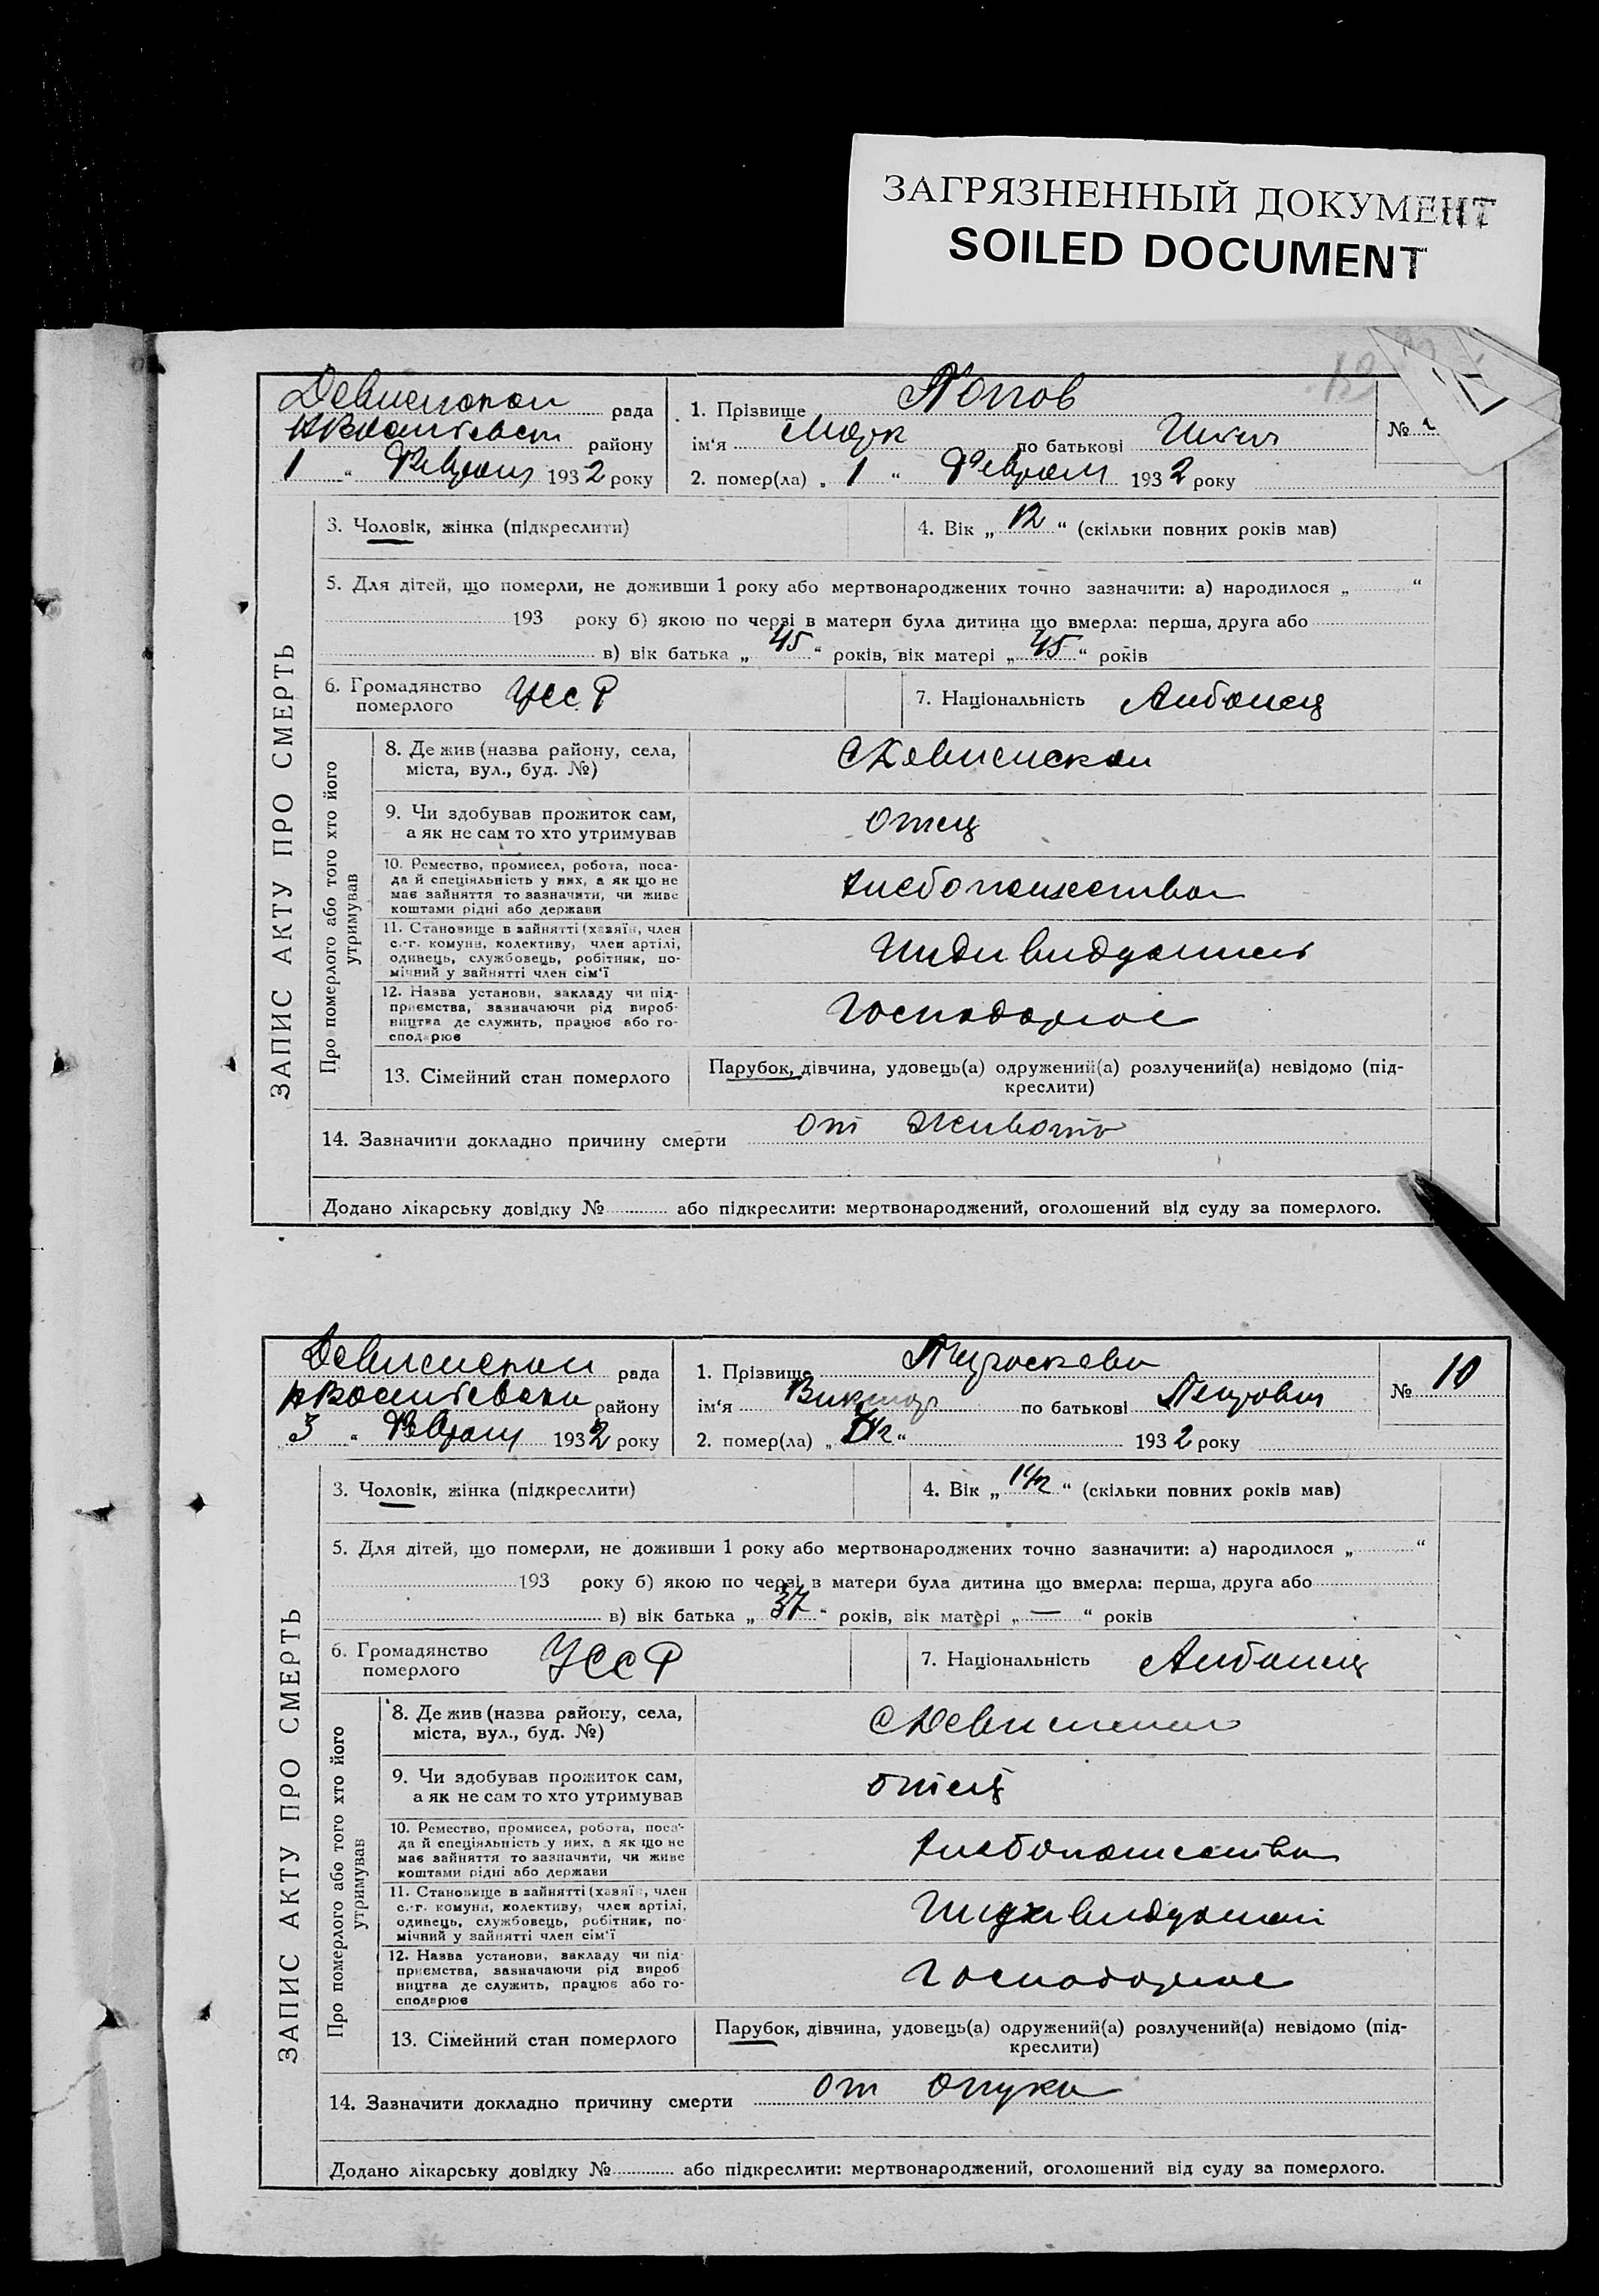 ЗАГРЯЗНЕННЫЙ ДОКУМЕНТ
SOILED DOCUMENT
рада
району
1 " 1932 року
1. Прізвище Попов
ім'я Марк по батькові
№
2. помер(ла) „ 1 " 1932 року
ЗАПИС АКТУ ПРО СМЕРТЬ
3. Чоловік, жінка (підкреслити)
4. Вік „ 12 " (скільки повних років мав)
5. Для дітей, що померли, не доживши 1 року або мертвонароджених точно зазначити: а) народилося „ "
193 року б) якою по черзі в матери була дитина що вмерла: перша, друга або
в) вік батька „ 45 " років, вік матері „ 45 " років
6. Громадянство
померлого УССР
7. Національність Албанец
Про померлого або того хто його
утримував
8. Де жив (назва району, села,
міста, вул., буд. №)
9. Чи здобував прожиток сам,
а як не сам то хто утримував отец
10. Ремество, промисел, робота, поса-
да й спеціяльність у них, а як що не
має зайняття то зазначити, чи живе
коштами рідні або держави
11. Становище в зайнятті (хазяїн, член
с.-г. комуни, колективу, член артілі,
одинець, службовець, робітник, по-
мічний у зайнятті член сім'ї
12. Назва установи, закладу чи під-
приємства, зазначаючи рід вироб-
ництва де служить, працює або го-
сподарює
13. Сімейний стан померлого
Парубок, дівчина, удовець(а) одружений(а) розлучений(а) невідомо (під-
креслити)
14. Зазначити докладно причину смерти от живота
Додано лікарську довідку № або підкреслити: мертвонароджений, оголошений від суду за померлого.
рада
району
3 " 1932 року
1. Прізвище
ім'я Виктор по батькові Петрович
№ 10
2. помер(ла) „ " 1932 року
ЗАПИС АКТУ ПРО СМЕРТЬ
3. Чоловік, жінка (підкреслити)
4. Вік „ 1 1/2 " (скільки повних років мав)
5. Для дітей, що померли, не доживши 1 року або мертвонароджених точно зазначити: а) народилося „ "
193 року б) якою по черзі в матери була дитина що вмерла: перша, друга або
в) вік батька „ 37 " років, вік матері „ — " років
6. Громадянство
померлого УССР
7. Національність Албанец
Про померлого або того хто його
утримував
8. Де жив (назва району, села,
міста, вул., буд. №)
9. Чи здобував прожиток сам,
а як не сам то хто утримував отец
10. Ремество, промисел, робота, поса-
да й спеціяльність у них, а як що не
має зайняття то зазначити, чи живе
коштами рідні або держави
11. Становище в зайнятті (хазяїн, член
с.-г. комуни, колективу, член артілі,
одинець, службовець, робітник, по-
мічний у зайнятті член сім'ї
12. Назва установи, закладу чи під-
приємства, зазначаючи рід вироб-
ництва де служить, працює або го-
сподарює
13. Сімейний стан померлого
Парубок, дівчина, удовець(а) одружений(а) розлучений(а) невідомо (під-
креслити)
14. Зазначити докладно причину смерти от
Додано лікарську довідку № або підкреслити: мертвонароджений, оголошений від суду за померлого.